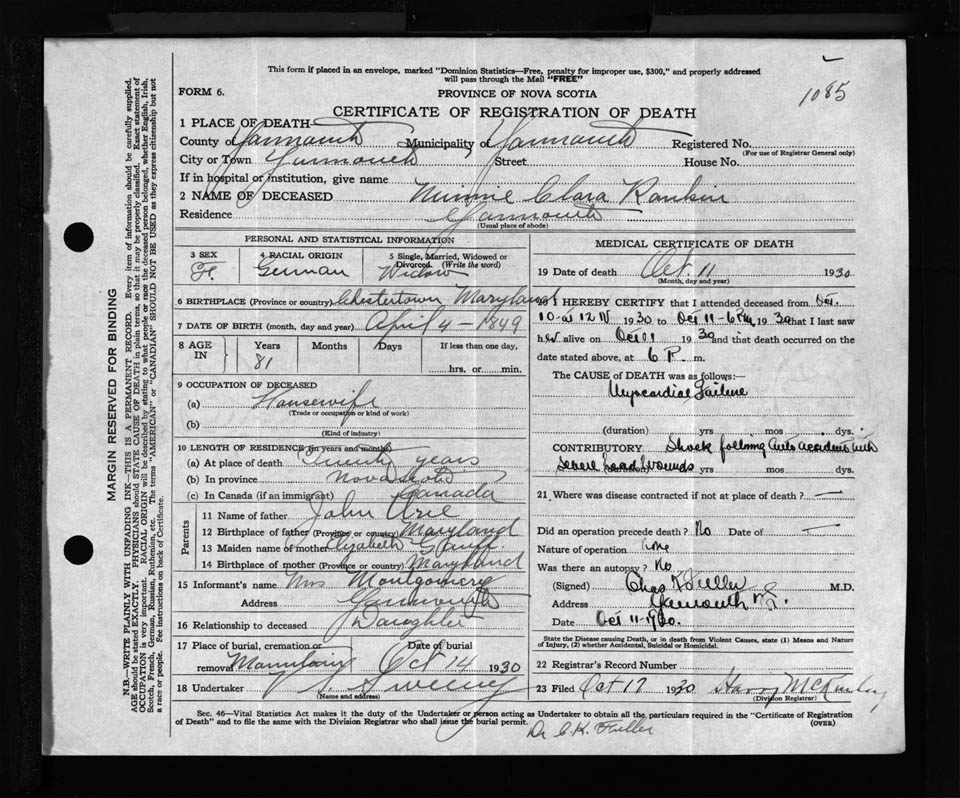 This form if placed in an envelope, marked "Dominion Statistics—Free, penalty for improper use, $300," and properly addressed
will pass through the Mail "FREE"
1085
FORM 6.
PROVINCE OF NOVA SCOTIA
CERTIFICATE OF REGISTRATION OF DEATH
1 PLACE OF DEATH
County of Yarmouth Municipality of Yarmouth Registered No.
(For use of Registrar General only)
City or Town Yarmouth Street House No.
If in hospital or institution, give name
2 NAME OF DECEASED Minnie Clara Rankin
Residence Yarmouth
(Usual place of abode)
PERSONAL AND STATISTICAL INFORMATION
3 SEX 4 RACIAL ORIGIN 5 Single, Married, Widowed or
Divorced. (Write the word)
F. German Widow
6 BIRTHPLACE (Province or country) Chestertown Maryland
7 DATE OF BIRTH (month, day and year) April 4 - 1849
8 AGE IN Years Months Days If less than one day,
81 hrs. or min.
9 OCCUPATION OF DECEASED
(a) Housewife
(Trade or occupation or kind of work)
(b)
(Kind of industry)
10 LENGTH OF RESIDENCE (in years and months)
(a) At place of death years
(b) In province Nova Scotia
(c) In Canada (if an immigrant) Canada
Parents
11 Name of father John
12 Birthplace of father (Province or country) Maryland
13 Maiden name of mother Elizabeth
14 Birthplace of mother (Province or country) Maryland
15 Informant's name Mrs Montgomery
Address Yarmouth
16 Relationship to deceased Daughter
17 Place of burial, cremation or removal Date of burial
Oct 14 1930
18 Undertaker Sweeney
(Name and address)
MEDICAL CERTIFICATE OF DEATH
19 Date of death Oct. 11 1930
(Month, day and year)
20 I HEREBY CERTIFY that I attended deceased from Oct.
10 at 12 N 1930 to Oct 11-6 PM 1930 that I last saw
her alive on Oct 11 1930 and that death occurred on the
date stated above, at 6 P. m.
The CAUSE OF DEATH was as follows:—
Myocardial Failure
(duration) yrs mos days.
CONTRIBUTORY Shock following Auto accident with
severe head wounds (duration) yrs mos days.
21 Where was disease contracted if not at place of death? —
Did an operation precede death? No Date of —
Nature of operation None
Was there an autopsy? No
(Signed) Chas K Fuller M.D.
Address Yarmouth N.S.
Date Oct 11-1930.
State the Disease causing Death, or in death from Violent Causes, state (1) Means and Nature
of Injury, (2) whether Accidental, Suicidal or Homicidal.
22 Registrar's Record Number
23 Filed Oct 17 1930 Harry McKinley
(Division Registrar)
Sec. 46—Vital Statistics Act makes it the duty of the Undertaker or person acting as Undertaker to obtain all the particulars required in the "Certificate of Registration
of Death" and to file the same with the Division Registrar who shall issue the burial permit. (OVER)
Dr C.K. Fuller
MARGIN RESERVED FOR BINDING
N.B.—WRITE PLAINLY WITH UNFADING INK—THIS IS A PERMANENT RECORD. Every item of information should be carefully supplied.
AGE should be stated EXACTLY. PHYSICIANS should STATE CAUSE OF DEATH in plain terms, so that it may be properly classified. Exact statement of
OCCUPATION is very important. RACIAL ORIGIN will be described by stating to what people or race the deceased person belonged, whether English, Irish,
Scotch, French, German, Russian, Ruthenian, etc. The terms "AMERICAN" or "CANADIAN" SHOULD NOT BE USED as they express citizenship but not
a race or people. See instructions on back of Certificate.